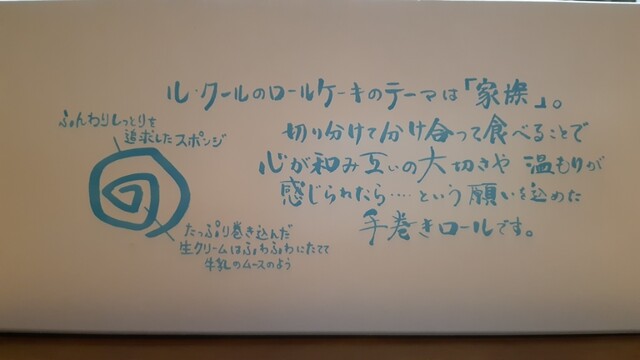 ル・クールのロールケーキのテーマは「家族」。
切り分けて分け合って食べることで
心が和み互いの大切さや 温もりが
感じられたら‥‥という願いを込めた
手巻きロールです。
ふんわりしっとりを
追求したスポンジ
たっぷり巻き込んだ
生クリームはふわふわにたてて
牛乳のムースのよう